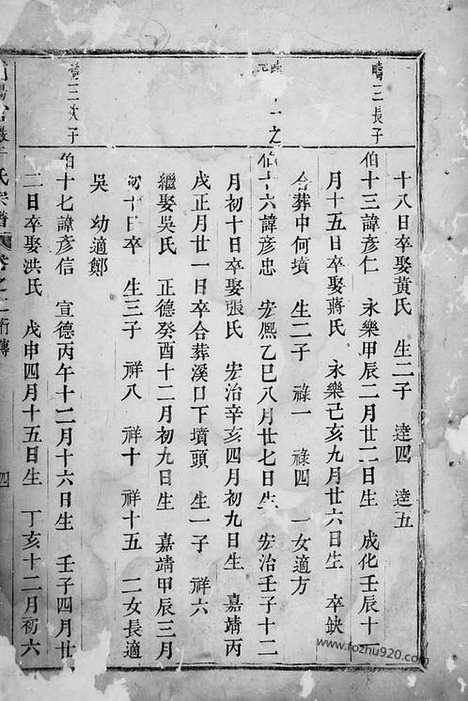 十八日卒娶黃氏 生二子 達四 達五
疇三長子
伯十三諱彥仁 永樂甲辰二月廿二日生 成化壬辰十一
月十五日卒娶蔣氏 永樂己亥九月廿六日生 卒缺
合葬中何墳 生二子 祿一 祿四 一女適方
之
伯十六諱彥忠 宏熙乙巳八月廿七日生 宏治壬子十二
月初十日卒娶張氏 宏治辛亥四月初九日生 嘉靖丙
戌正月廿一日卒合葬溪口下墳頭 生一子 祥六
繼娶吳氏 正德癸酉十二月初九日生 嘉靖甲辰三月
初十日卒 生三子 祥八 祥十 祥十五 二女長適
吳 幼適鄭
三次子
伯十七諱彥信 宣德丙午十二月十六日生 壬子四月廿
二日卒娶洪氏 戊申四月十五日生 丁亥十二月初六
氏宗譜 卷之二 衍傳 四
www.fozhu920.com